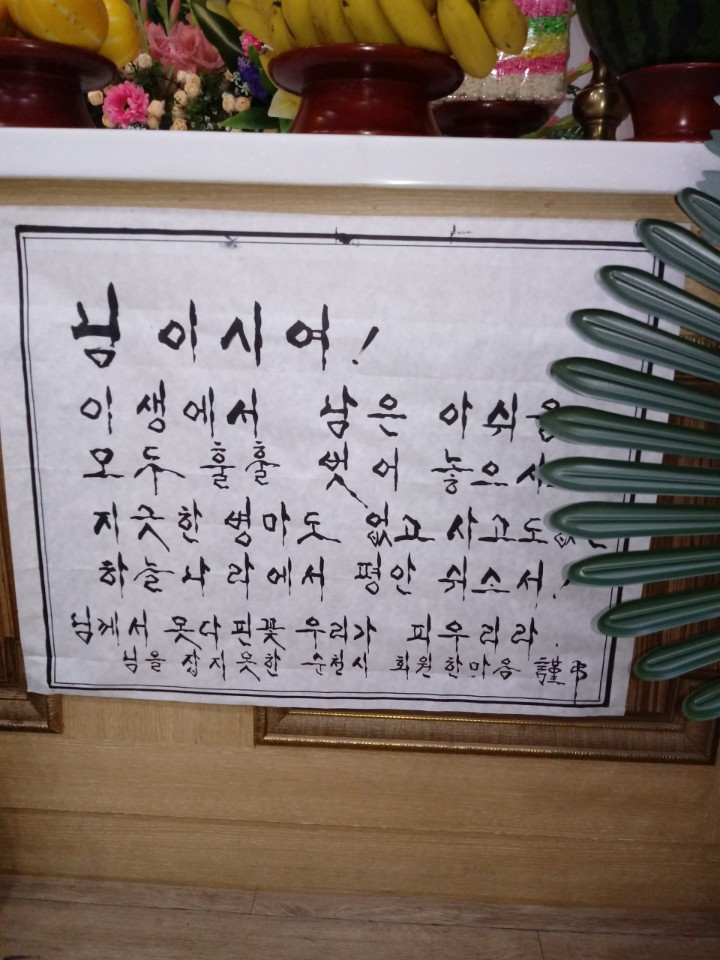 님이시여!
이생에서 남은 아쉬움
모두 훌훌 벗어 놓으시
지긋한 병마도 없고 사고도없는
하늘나라에서 평안 쉬소서!
님께서 못다핀꽃 우리가 피우리라.
님을 잡지못한 순천시 회원한마음 謹弔